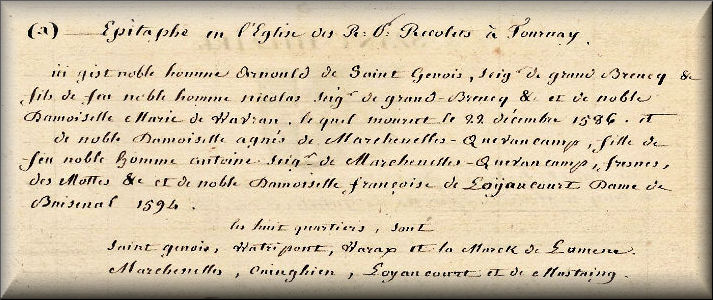 (a) Epitaphe en l'Eglise des R: P: Recolets à Tournay.
ici gist noble homme Arnould de Saint Genois, seigr de grand Breucq &
fils de feu noble homme nicolas seigr de grand-Breucq & et de noble
Damoiselle Marie de Wavran. lequel mourut le 22 décembre 1586. et
de noble Damoiselle agnés de Marchenelles-Quevancamp, fille de
feu noble homme antoine seigr de Marchenelles-Quevancamp, fresnes,
des Mottes & et de noble Damoiselle françoise de Loyaucourt Dame de
Baisenal 1594.
les huit quartiers, sont
saint genois, Watripont, Warax et la Marck de Lumene.
Marchenelles, Cuinghien, Loyaucourt et de Mastaing.